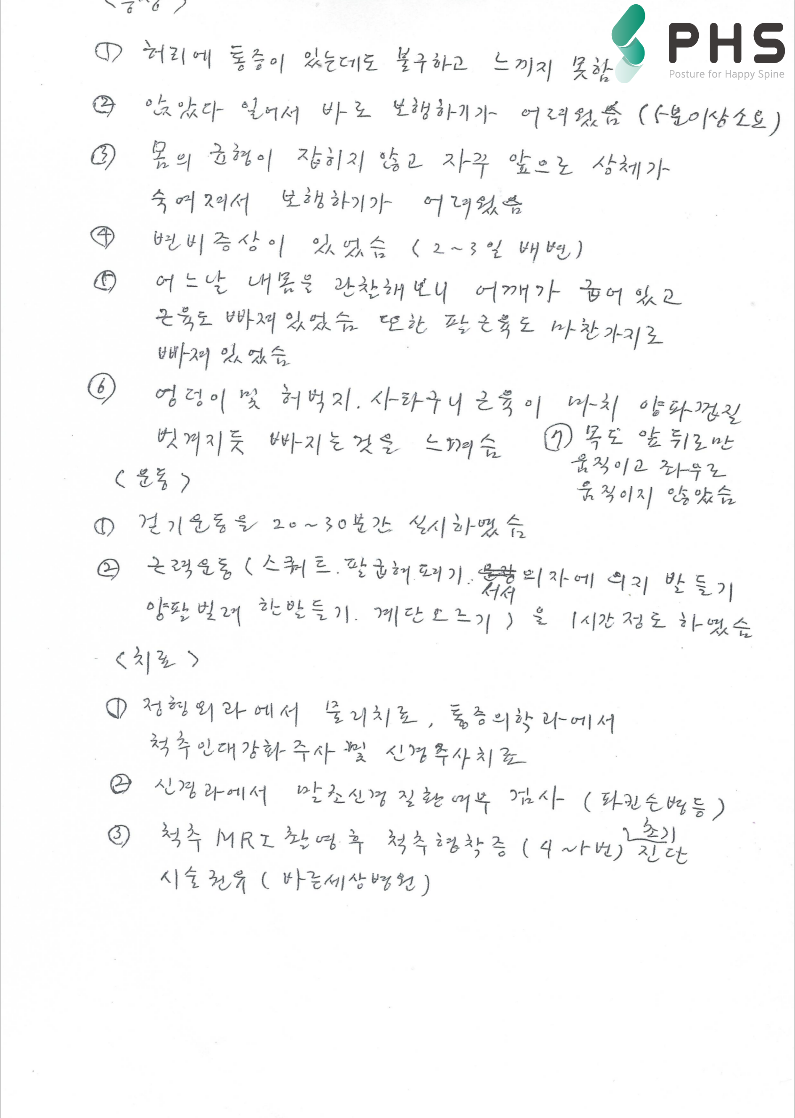 <증상>
PHS
Posture for Happy Spine
① 허리에 통증이 있는데도 불구하고 느끼지 못함
② 앉았다 일어서 바로 보행하기가 어려웠슴 (5분이상소요)
③ 몸의 균형이 잡히지 않고 자꾸 앞으로 상체가
숙여져서 보행하기가 어려웠슴
④ 변비증상이 있었슴 (2~3일 배변)
⑤ 어느날 내몸을 관찰해보니 어깨가 굽어있고
근육도 빠져있었슴 또한 팔근육도 마찬가지로
빠져있었슴
⑥ 엉덩이 및 허벅지. 사타구니 근육이 마치 양파껍질
벗겨지듯 빠지는것을 느껴슴
⑦ 목도 앞뒤로만
움직이고 좌우로
움직이지 않았슴
<운동>
① 걷기운동을 20~30분간 실시하였슴
② 근력운동 (스쿼트. 팔굽혀펴기. 서서 의자에 의지 발들기
양팔벌려 한발들기. 계단오르기) 을 1시간정도 하였슴
<치료>
① 정형외과에서 물리치료, 통증의학과에서
척추인대강화주사 및 신경주사치료
② 신경과에서 말초신경질환여부 검사 (파킨슨병등)
③ 척추 MRI 촬영후 척추협착증 (4~5번) 초기
진단
시술권유 (바른세상병원)